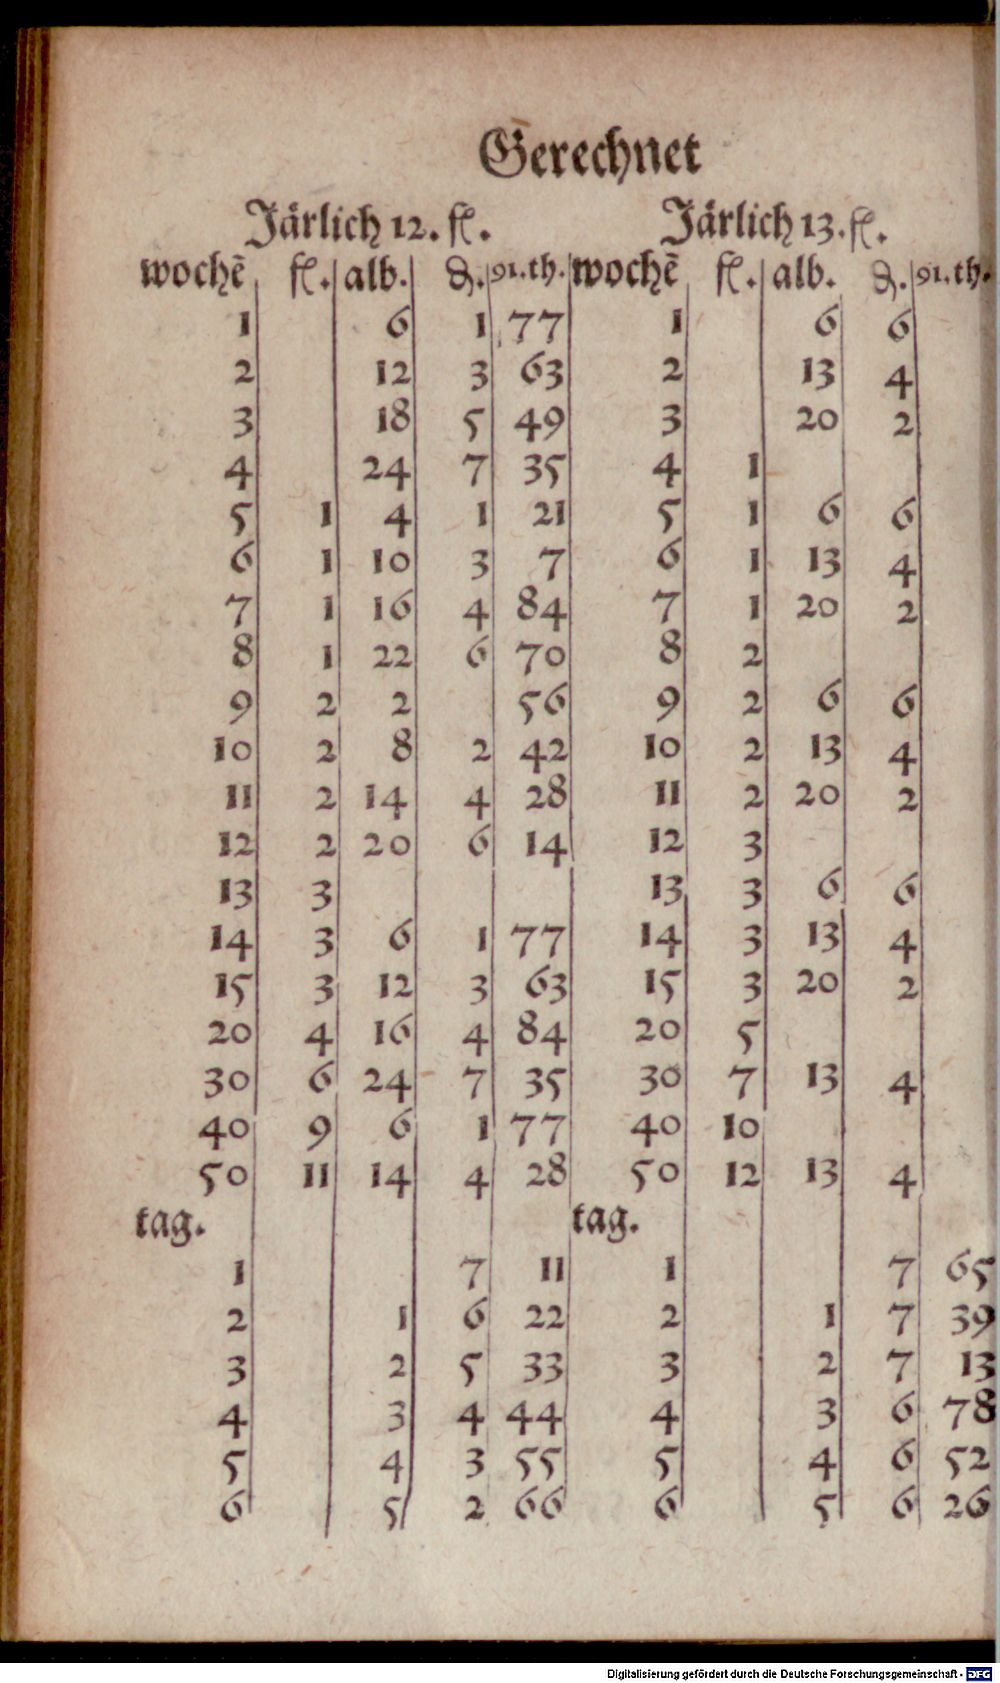 Gerechnet
Järlich 12. fl. Järlich 13. fl.
wochẽ fl. alb. ₰. 91. th. wochẽ fl. alb. ₰. 91. th.
1 6 1 77 1 6 6
2 12 3 63 2 13 4
3 18 5 49 3 20 2
4 24 7 35 4 1
5 1 4 1 21 5 1 6 6
6 1 10 3 7 6 1 13 4
7 1 16 4 84 7 1 20 2
8 1 22 6 70 8 2
9 2 2 56 9 2 6 6
10 2 8 2 42 10 2 13 4
11 2 14 4 28 11 2 20 2
12 2 20 6 14 12 3
13 3 13 3 6 6
14 3 6 1 77 14 3 13 4
15 3 12 3 63 15 3 20 2
20 4 16 4 84 20 5
30 6 24 7 35 30 7 13 4
40 9 6 1 77 40 10
50 11 14 4 28 50 12 13 4
tag. tag.
1 7 11 1 7 65
2 1 6 22 2 1 7 39
3 2 5 33 3 2 7 13
4 3 4 44 4 3 6 78
5 4 3 55 5 4 6 52
6 5 2 66 6 5 6 26
Digitalisierung gefördert durch die Deutsche Forschungsgemeinschaft - DFG